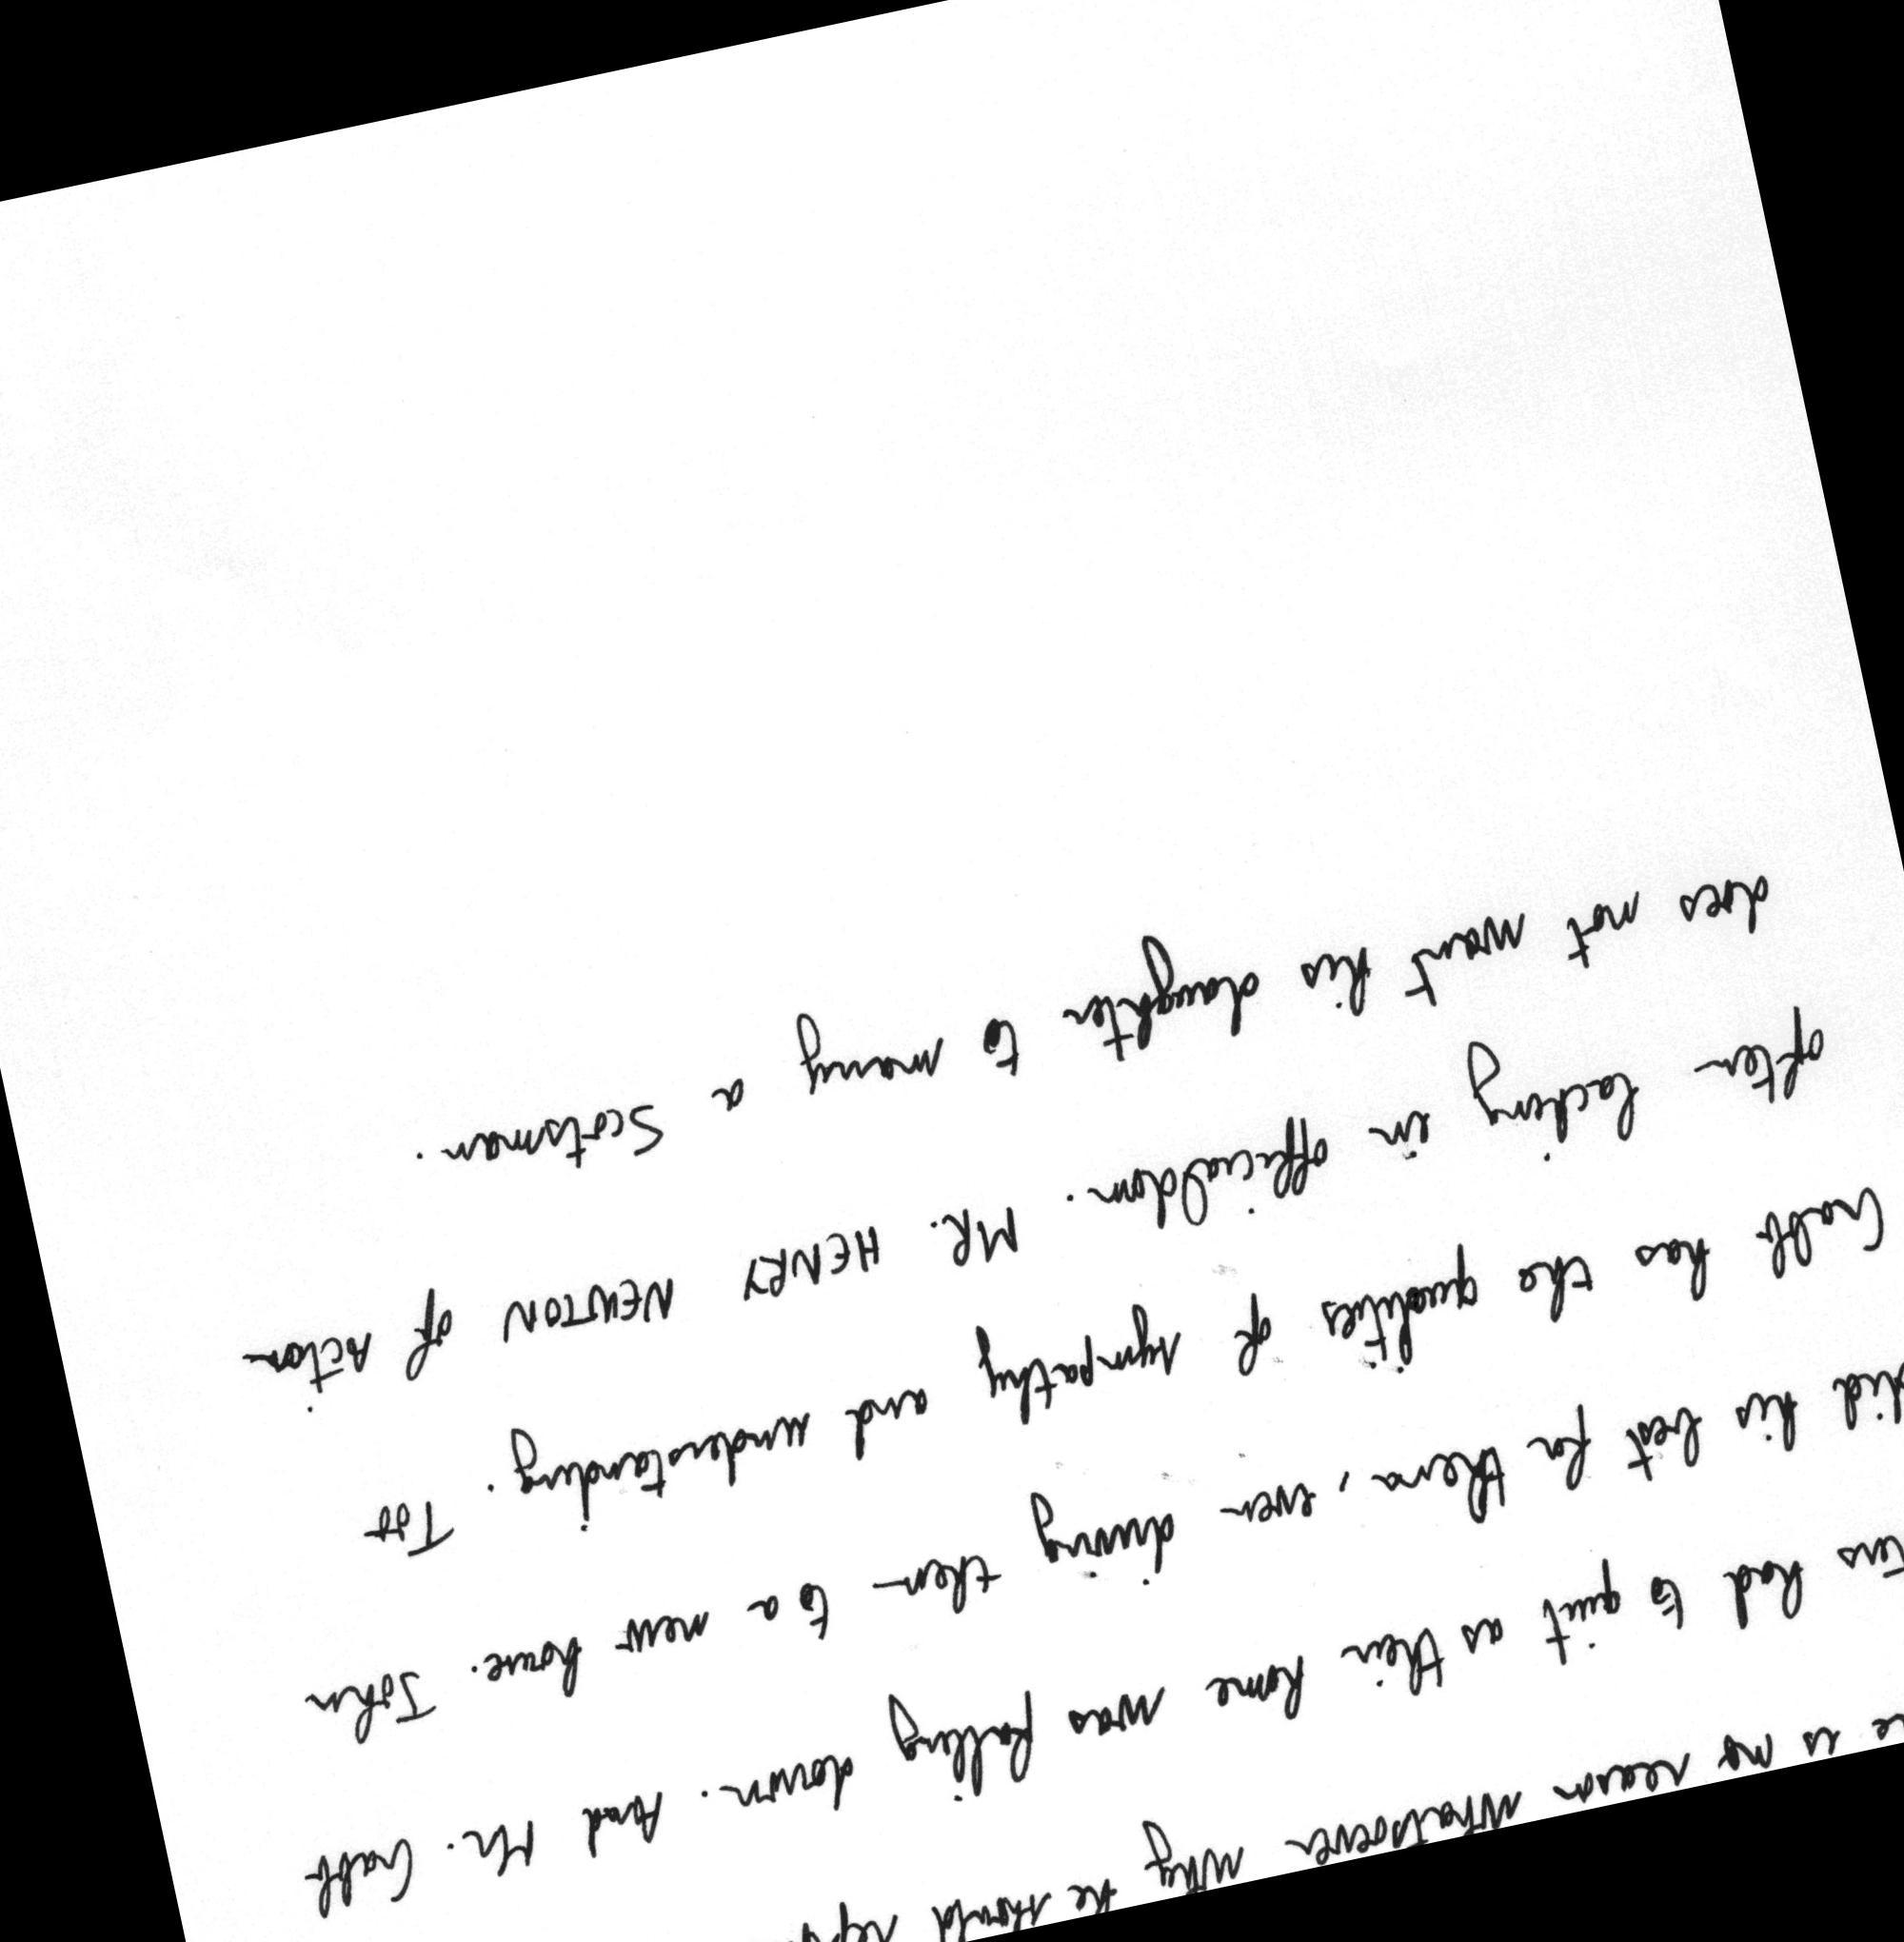 is no reason whatsoever why he should
had to quit as their home was falling down. And Mr. Crabb
did his best for them, even driving them to a new house. John
Crabb has the qualities of sympathy and understanding. Too
often lacking in officialdom. MR. HENRY NEWTON of Acton
does not want his daughter to marry a Scotsman.